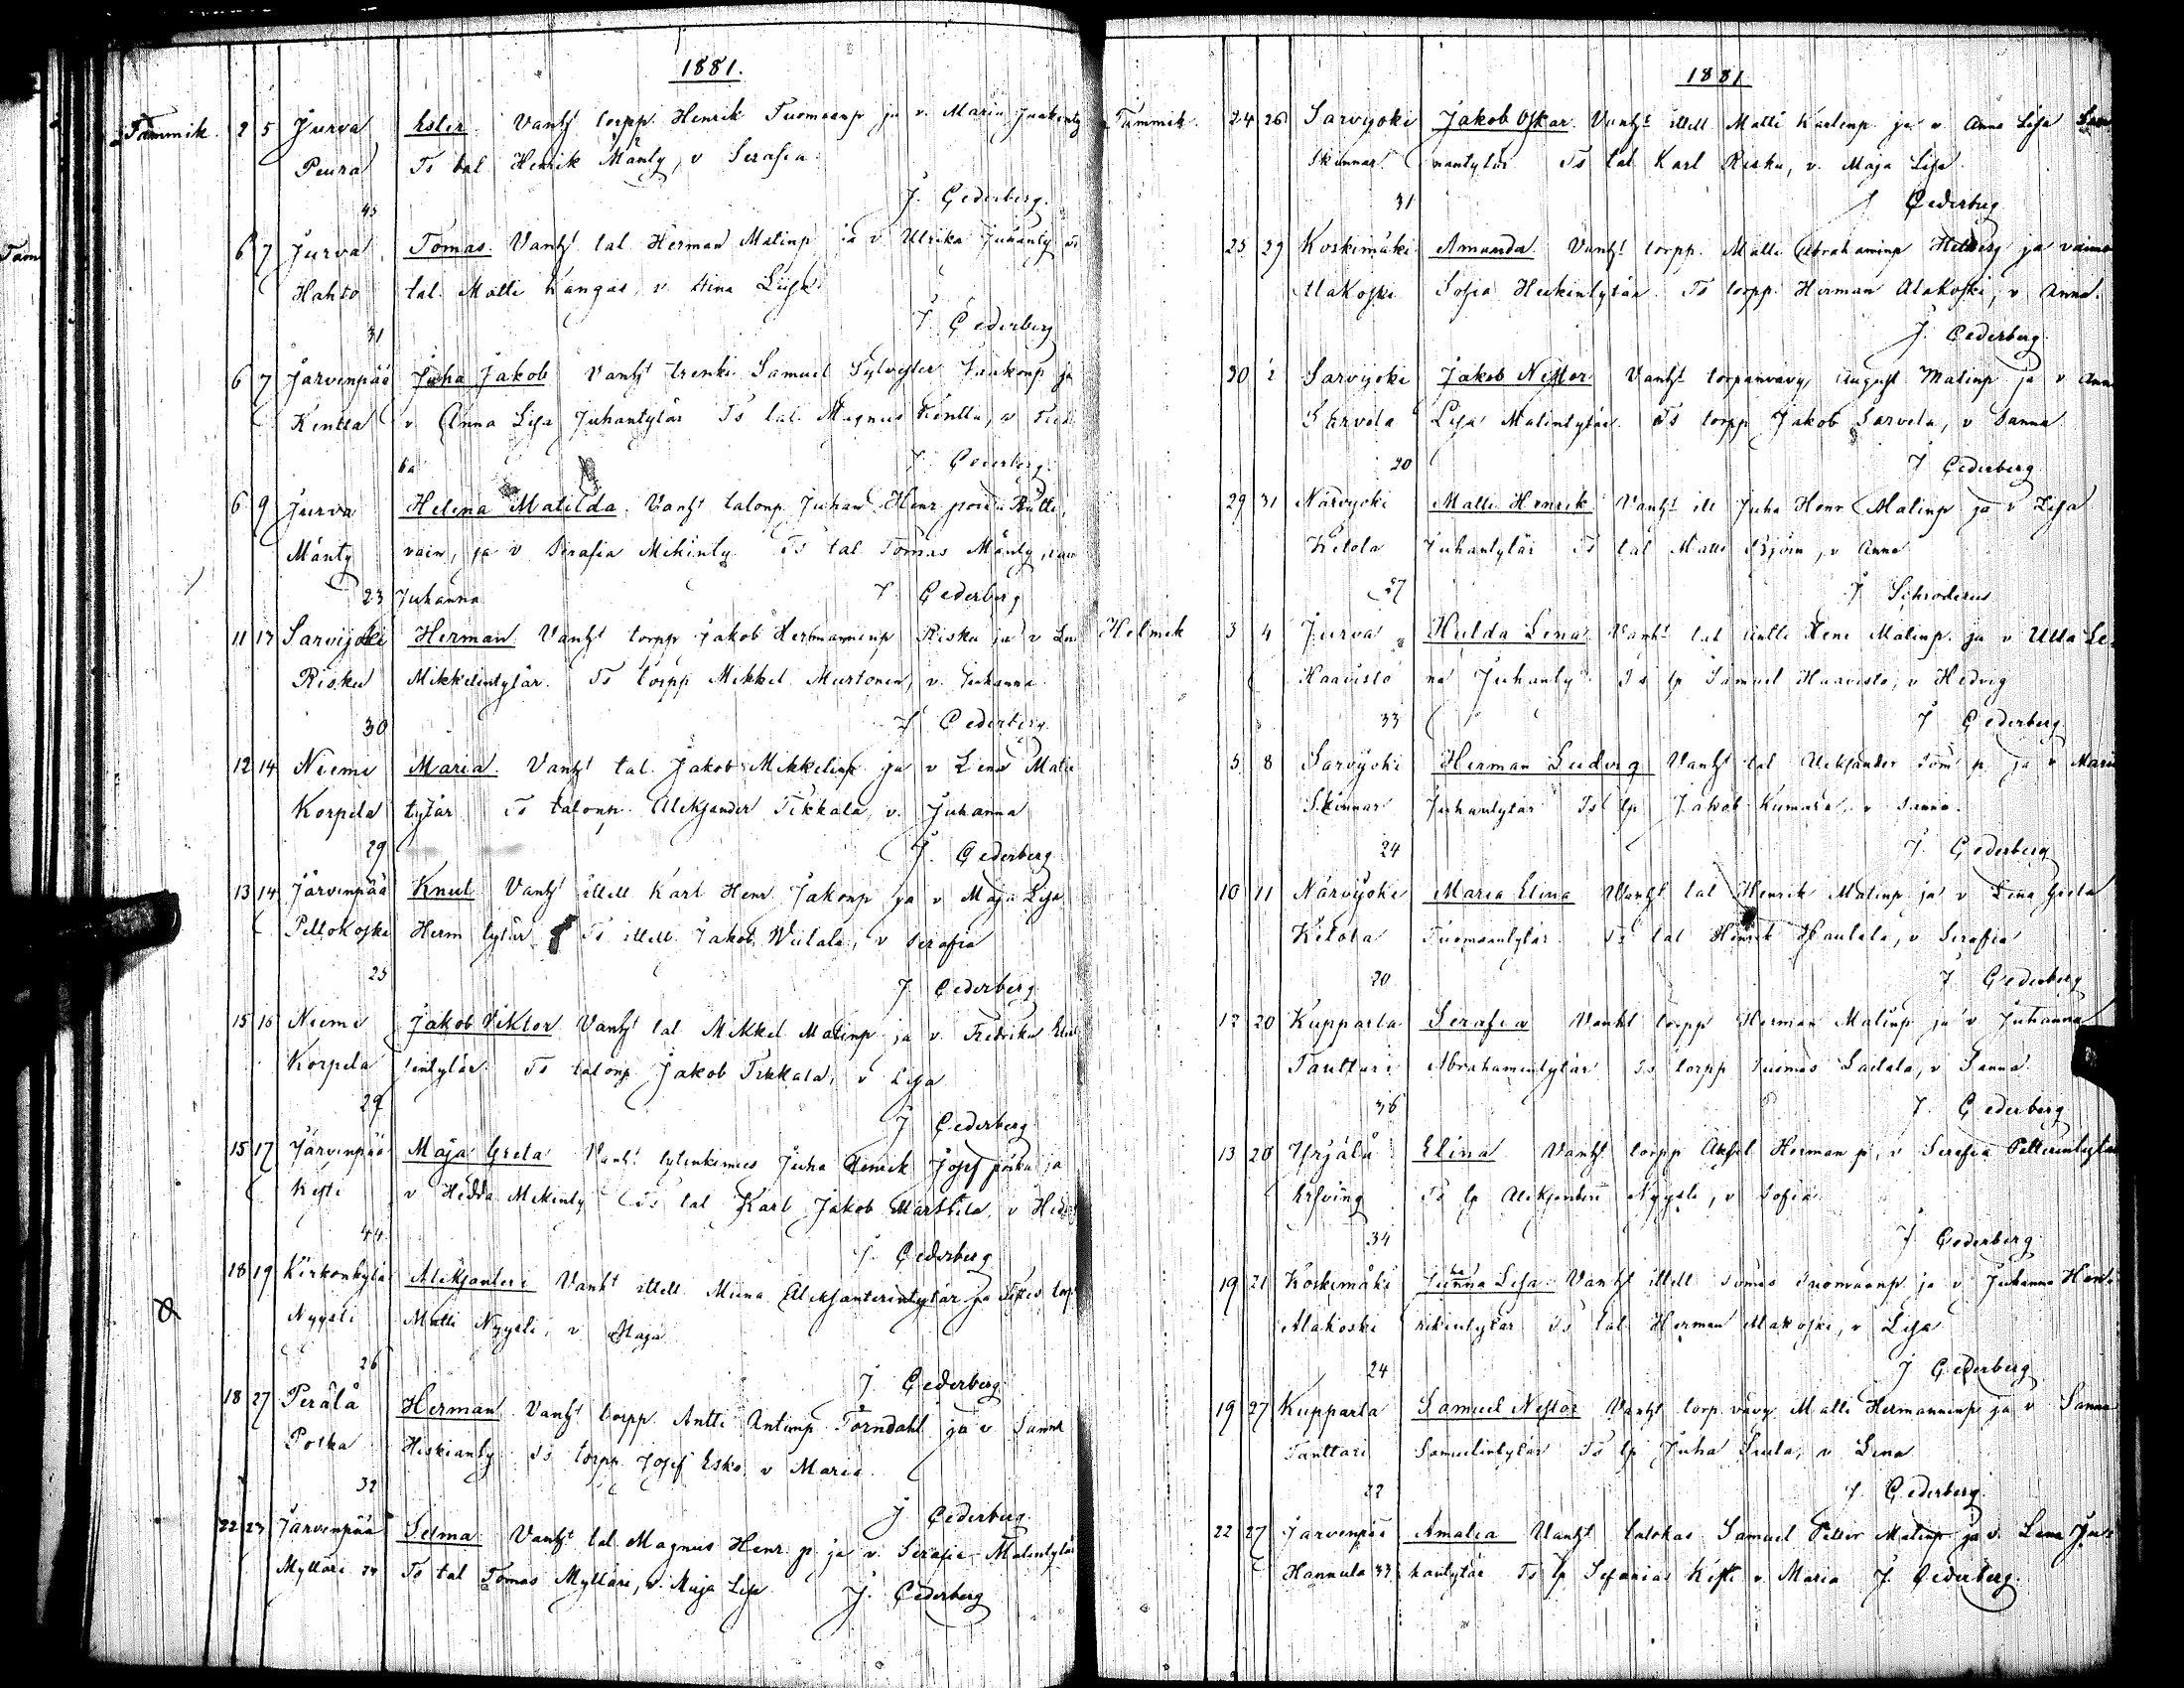 1881.
Tammik. 2 5 Jurva Ester. Vanht torpp. Henrik Tuomaanp ja v. Maria Juakinty
Peura Ts tal Henrik Mänty, v Serafia
45 J. Cederberg.
6 7 Jurva Tomas. Vanht tal. Herman Matinp ja v. Ulrika Juhanty Ts
Hahto tal. Matti Kangas, v. Stina Liisa
31 J. Cederberg
6 7 Järvenpää Juha Jakob Vanht trenki Samuel Sylvester Jaakonp ja
Kentta v. Anna Lisa Juhantytär Ts tal. Magnus Kentta, v
6a J. Cederberg.
6 9 Jurva Helena Matilda. Vanht talonp. Juhan Henr. poika
Mänty vain, ja v Serafia Mikinty Ts tal Tomas Mänty, vaim
23 Juhanna J. Cederberg
11 13 Sarvijoki Herman. Vanht torpp Jakob Hermanninp Risku ja v
Risku Mikkelintytär. Ts torpp Mikkel Murtonen, v. Juhanna
30 J. Cederberg.
12 14 Niemi Maria. Vanht tal. Jakob Mikkelinp ja v Lena Matin
Korpela tytär Ts talonp. Aleksander Tikkala, v. Juhanna
29 J. Cederberg
13 14 Järvenpää Knut Vanht ittell Karl Henr. Jakonp ja v Maja Lisa
Peltokoski Herm tytär Ts ittell. Jakob Wiitala, v Serafia
25 J. Cederberg
15 16 Niemi Jakob Viktor Vanht tal. Mikkel Matinp ja v. Fredrika
Korpela tintytär. Ts talonp. Jakob Tikkala, v Lisa
29 J Cederberg
15 17 Järvenpää Maja Greta Vanht. Juha Henrik Josef poika ja
Kesti v Hedda Mikinty Ts tal Karl Jakob Marttila v
44 J. Cederberg
18 19 Kirkonkylä Aleksanteri Vanht ittell Miina Aleksanterintytär ja
Nyysti Matti Nyysti, v Maja
26 J. Cederberg
18 27 Perälä Herman Vanht torpp. Antti Antinp Törndahl ja v Sanna
Potka Hiskianty Ts torpp Josef Esko, v Maria
32 J Cederberg.
22 23 Järvenpää Selma. Vanht tal. Magnus Henr. p. ja v. Serafia Matintytär
Mylläri Ts tal Tomas Mylläri, v. Maja Lisa J. Cederberg
1881
Tammik. 24 26 Sarvijoki Jakob Oskar. Vanht ittell Matti Karlinp ja v. Anna Lisa
Skinnar nantytär Ts tal Karl Risku, v. Maja Lisa
31 J Cederberg
25 29 Koskimäki Amanda Vanht torpp. Matti Abrahaminp Hellberg ja vaimo
Alakoski Sofia Heikintytär Ts torpp. Herman Alakoski, v Anna.
J. Cederberg
30 2 Sarvijoki Jakob Nestor Vanht torpanvävy August Matinp ja v Anna
Sarvela Lisa Matintytär. Ts torpp Jakob Sarvela, v Sanna
20 J Cederberg
29 31 Närvijoki Matti Henrik Vanht itt Juha Henr. Matinp ja v Lisa
Ketola Juhantytär Ts tal Matti, v Anna
27 J Schroderus
Helmik 3 4 Jurva Hulda Lena Vanht tal Antti Matinp. ja v Ulla Le-
Haavisto na Juhanty. Ts lp Samuel Haavisto, v Hedvig
33 J Cederberg
5 8 Sarvijoki Herman Ludvig Vanht tal Aleksander Tom p. ja v Maria
Skinnar Juhantytär Ts lp Jakob Kumara, v Sanna.
24 J. Cederberg
10 11 Närvijoki Maria Elina Vanht tal Henrik Matinp ja v Lena Greta
Ketola Tuomaantytär. Ts tal Henrik Hautala, v Serafia
20 J Cederberg
12 20 Kupparla Serafia Vanht torpp Herman Matinp ja v Juhanna
Tanttari Abrahamintytär Ts torpp Tuomas Laitala, v Sanna
36 J. Cederberg
13 20 Yrjälä Elina Vanht torpp Aksel Herman p. v Serafia Petterintytär
Ts lp Aleksanteri Nyysti, v Sofia
34 J Cederberg
19 21 Koskimäki Juhanna Lisa Vanht ittell Tomas Tuomaanp ja v Juhanna Hen-
Alakoski rikintytär Ts tal Herman Alakoski, v Lisa
24 J Cederberg
19 27 Kupparla Samuel Nestor Vanht torp. vävy Matti Hermanninp ja v Sanna
Tanttari Samuelintytär Ts lp Juha, v Lena
22 J. Cederberg.
22 27 Järvenpää Amalia Vanht talokas Samuel Petter Matinp ja v. Lena Ju-
Hannula 33 hantytär Ts lp Sefanias Kesti v. Maria J. Cederberg.